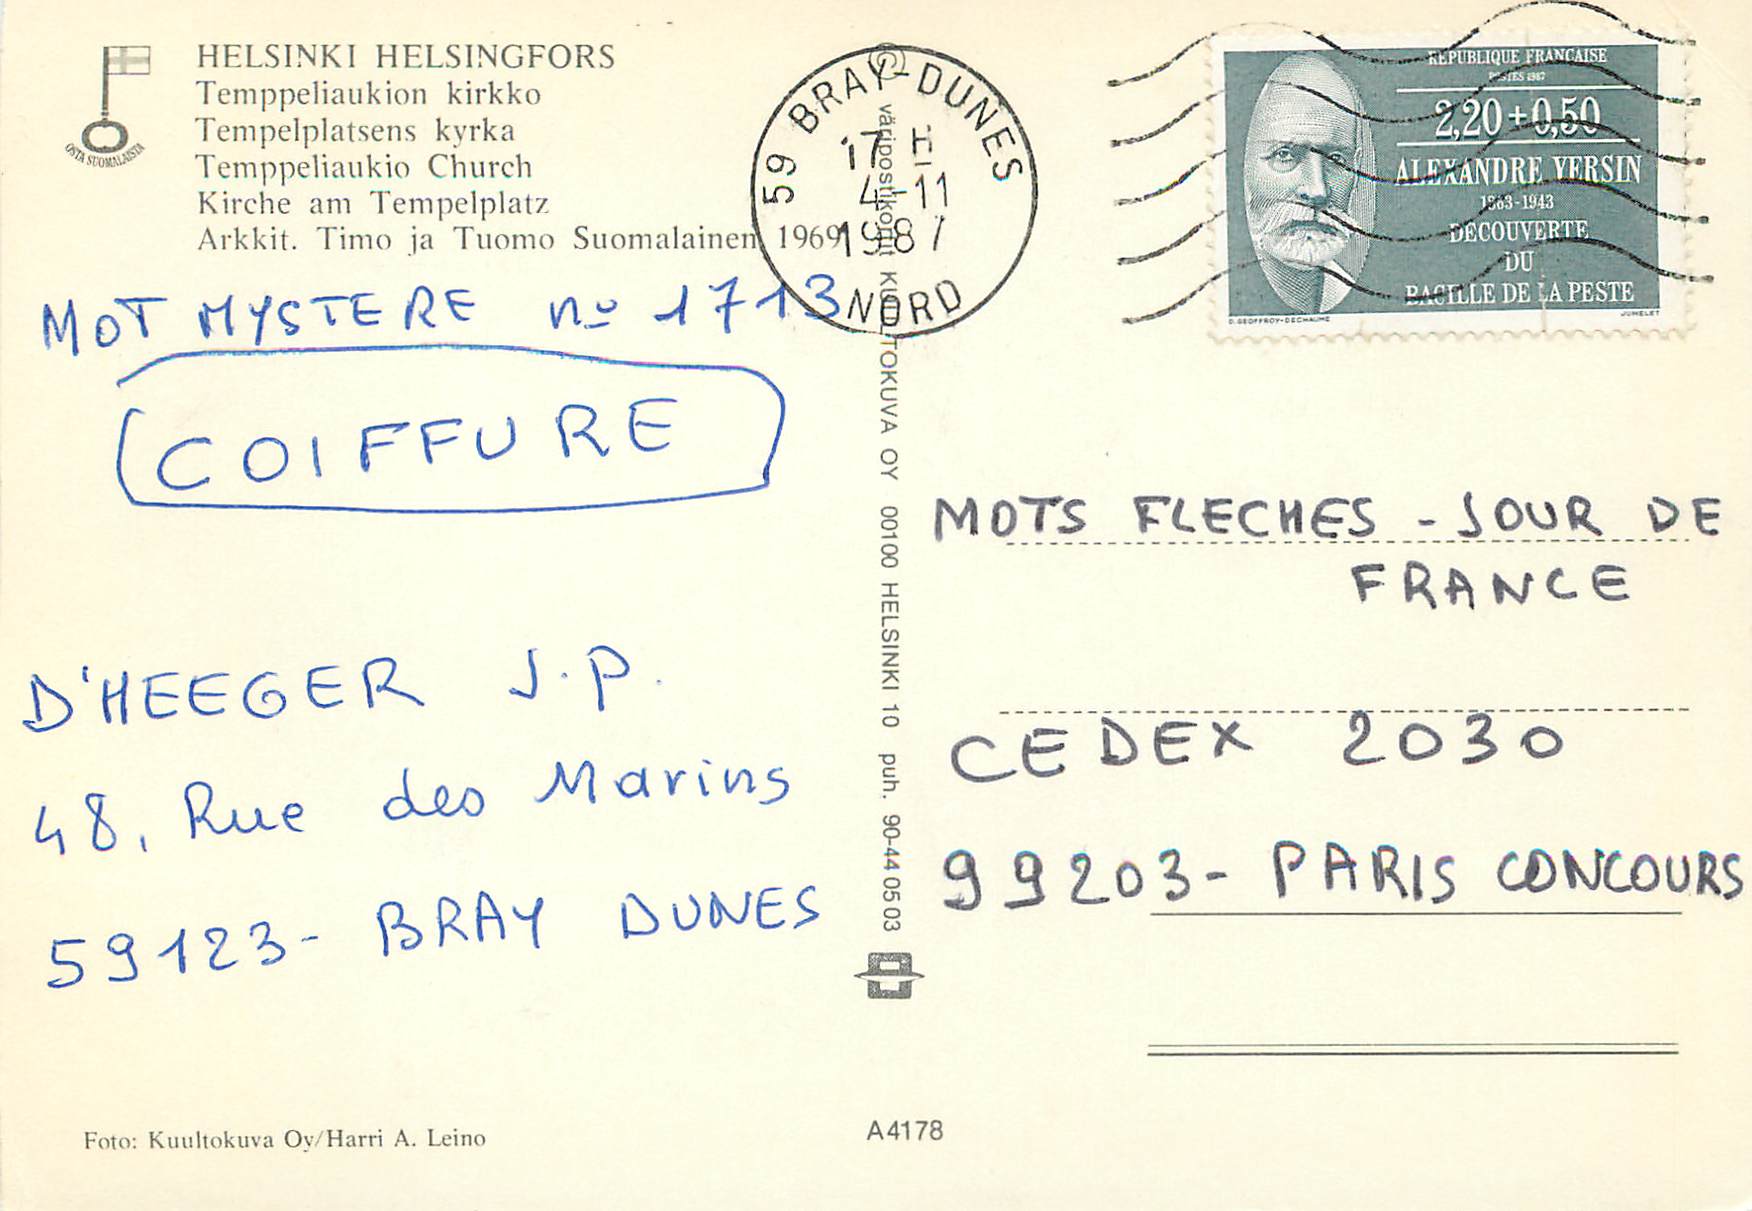 HELSINKI HELSINGFORS
Temppeliaukion kirkko
Tempelplatsens kyrka
Temppeliaukio Church
Kirche am Tempelplatz
Arkkit. Timo ja Tuomo Suomalainen 1969
OSTA SUOMALAISTA
MOT MYSTERE nº 1713
COIFFURE
D'HEEGER J.P.
48, Rue des Marins
59123- BRAY DUNES
Foto: Kuultokuva Oy/Harri A. Leino
59 BRAY-DUNES
17 H
4-11
1987
NORD
© väripostikortit KUULTOKUVA OY 00100 HELSINKI 10 puh. 90-44 05 03
A4178
REPUBLIQUE FRANÇAISE
POSTES 1987
2,20+0,50
ALEXANDRE YERSIN
1863-1943
DÉCOUVERTE
DU
BACILLE DE LA PESTE
D. GEOFFROY-DECHAUME
JUMELET
MOTS FLECHES - JOUR DE
FRANCE
CEDEX 2030
99203- PARIS CONCOURS